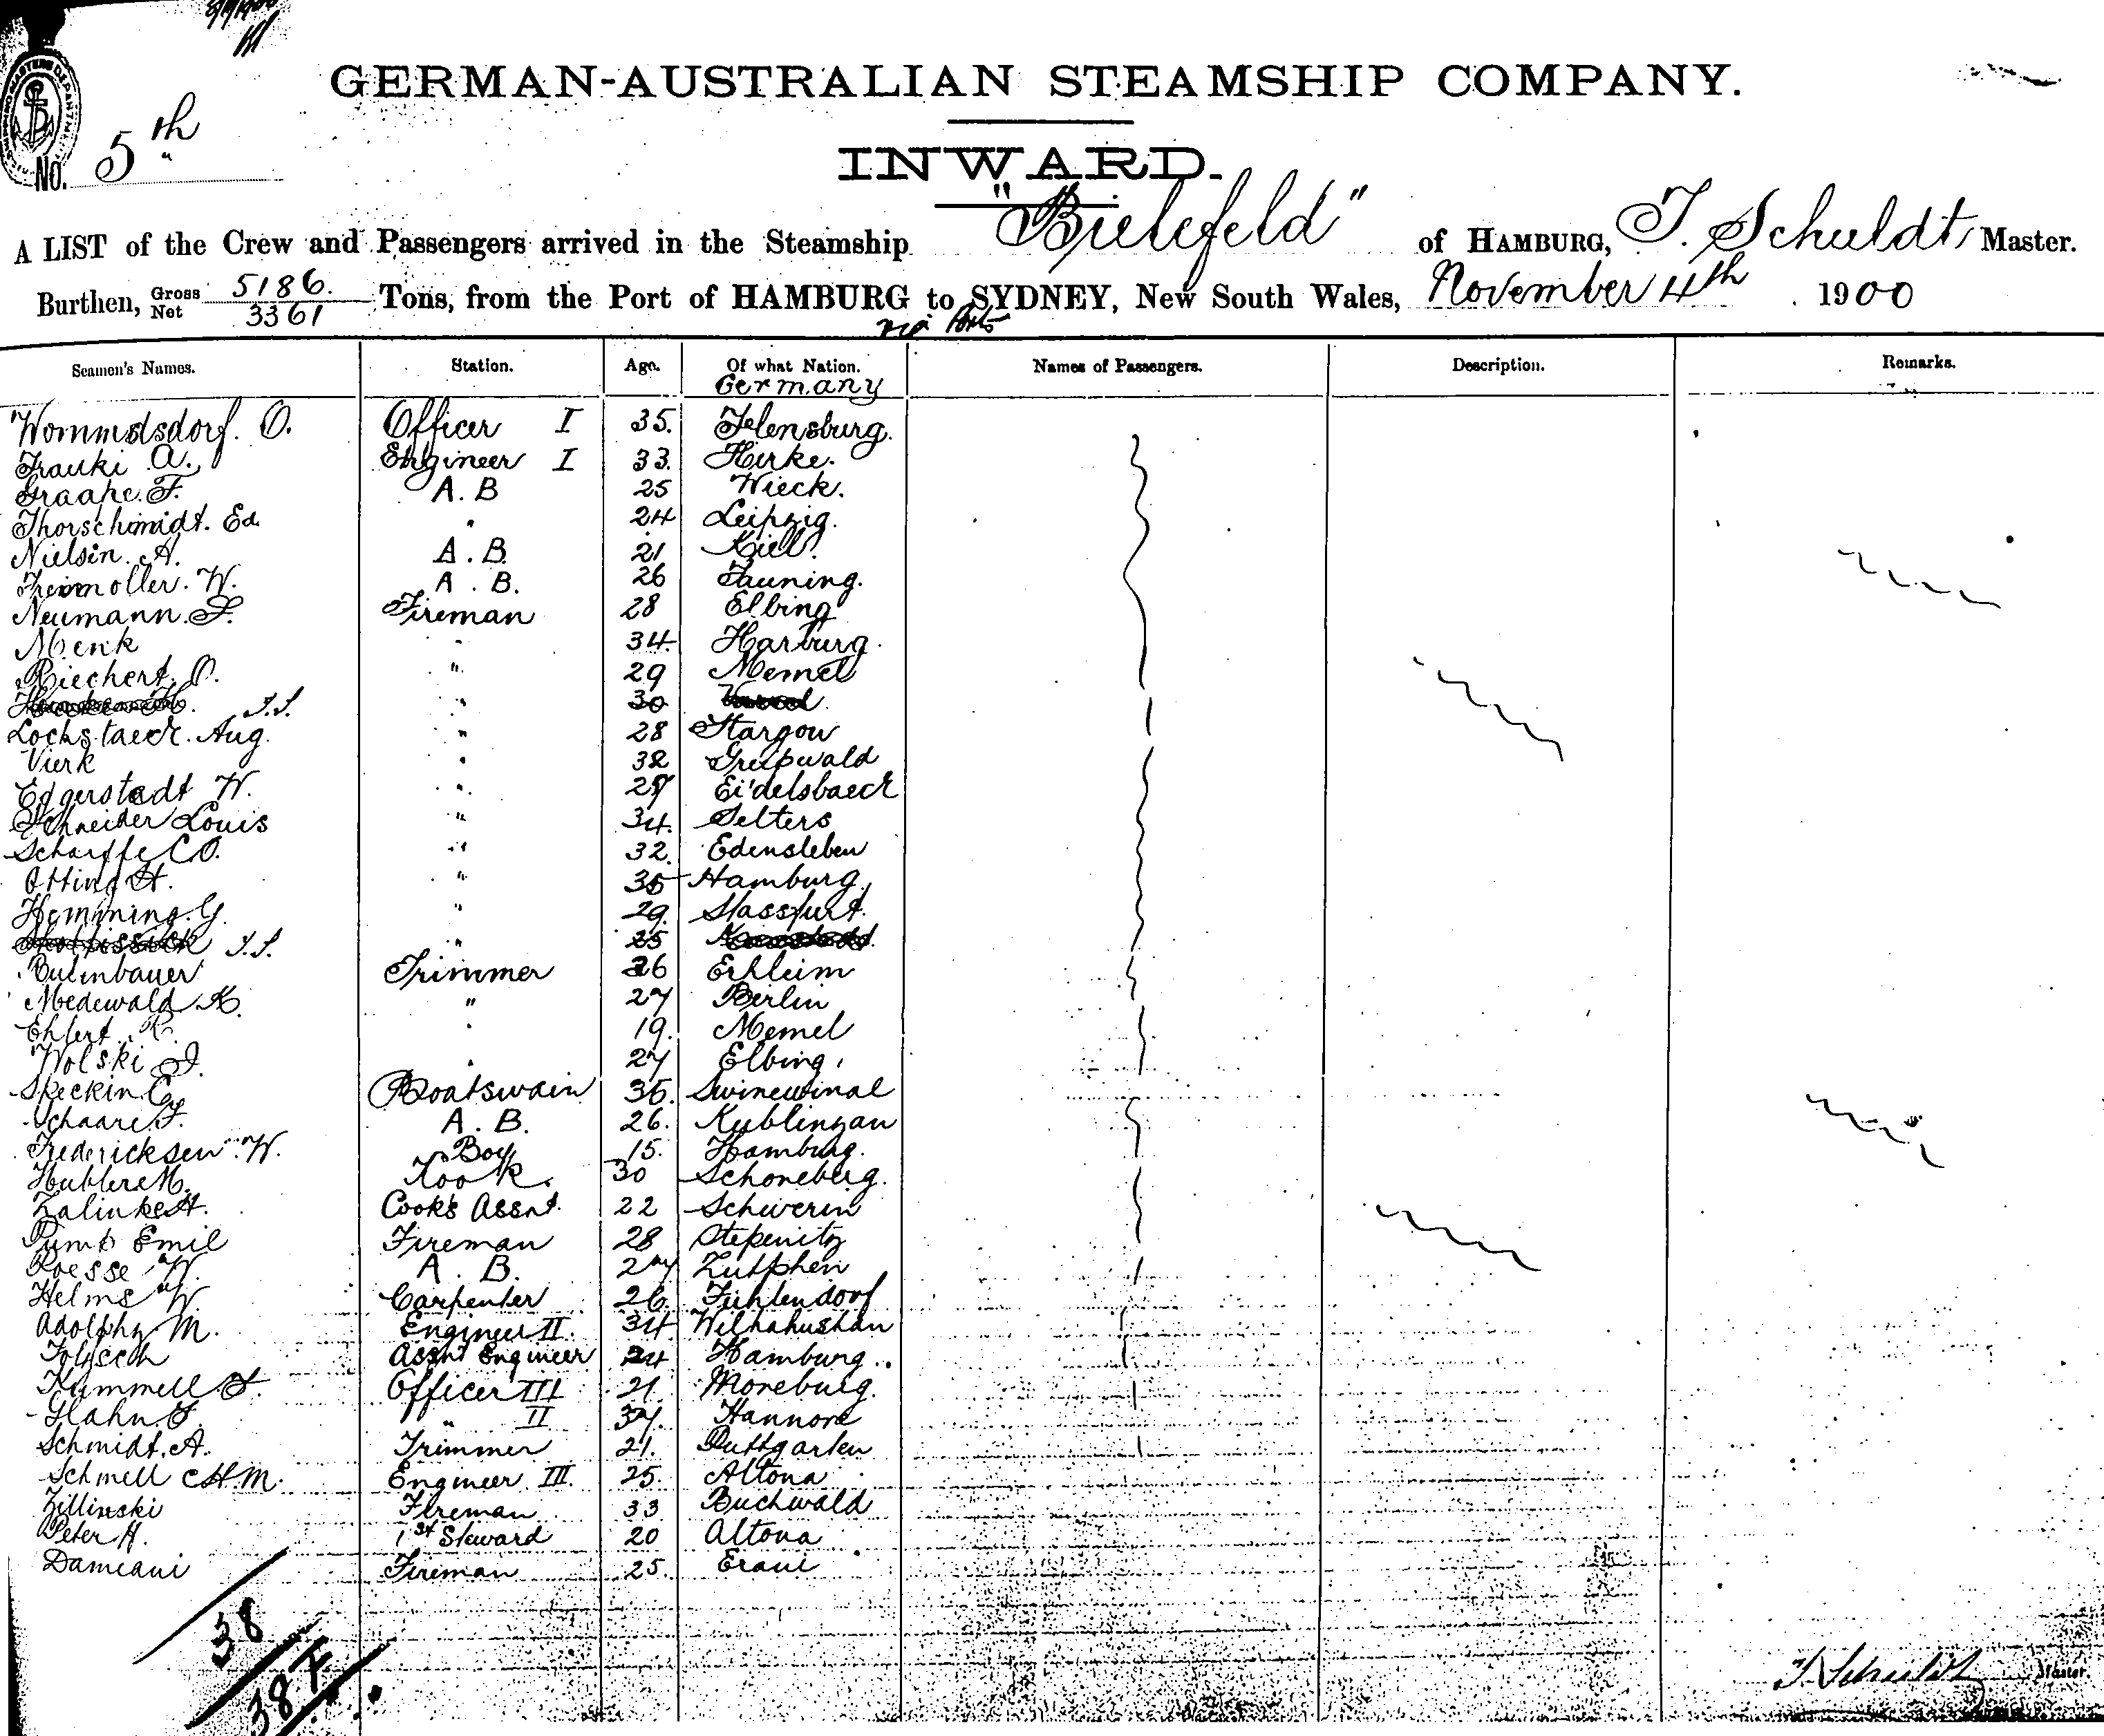 GERMAN-AUSTRALIAN STEAMSHIP COMPANY.
No. 5th
INWARD.
A LIST of the Crew and Passengers arrived in the Steamship "Bielefeld" of HAMBURG, J. Schuldt Master.
Burthen, Gross 5186. Net 3361 Tons, from the Port of HAMBURG to SYDNEY, New South Wales, November 4th 1900
via Ports
Seamen's Names. Station. Age. Of what Nation. Names of Passengers. Description. Remarks.
Germany
Wommelsdorf. O. Officer I 35. Flensburg.
Frauki A. Engineer I 33. Hirke.
Graape. F. A.B 25 Wieck.
Thorschmidt. Ed. " 24 Leipzig.
Nielsin. A. A.B. 21 Kiel.
W. A.B. 26 Fauning.
Neumann. F. Fireman 28 Elbing
Menk " 34. Harburg.
Riechert. O. " 29 Memel
J.S. " 30
Lochstaedt. Aug. " 28 Stargow
Vierk " 32 Greifswald
Edgerstedt W. " 29 Eidelsbaeck
Schneider Louis " 34. Selters
Scharffe C.O. " 32. Edensleben
Otting H. " 35 Hamburg.
Hemming. G. " 29. Stassfurt.
J.S. " 25
Bulenbauer Trimmer 26 Erhleim
Medewald K. " 27 Berlin
Ehlert. R. " 19. Memel
Wolski J. " 27 Elbing.
Speckin C. Boatswain 35. Swinewinal
Schaare. F. A.B. 26. Kublingan
Fredericksen. W. Boy 15. Hamburg.
Hubler M. Kook. 30 Schoneberg.
Zalinke H. Cook's Assnt. 22 Schwerin
Pump Emil Fireman 28 Stepenitz
Roesse W. A.B. 27 Zutphen
Helms W. Carpenter 26. Fuhlendorf
Adolphy M. Engineer II. 34 Wilhahushan
Assnt Engineer 24 Hamburg.
Kummell. F. Officer III 21. Moneburg.
Glahn. F. " II 37. Hannore
Schmidt. A. Trimmer 21. Puttgarten
Schnell C.H.M. Engineer III. 25. Altona
Zillinski Fireman 33 Buchwald
Peter H. 1st Steward 20 Altona
Dameani Fireman 25. Eraui
38
38 F
J. Schuldt Master.